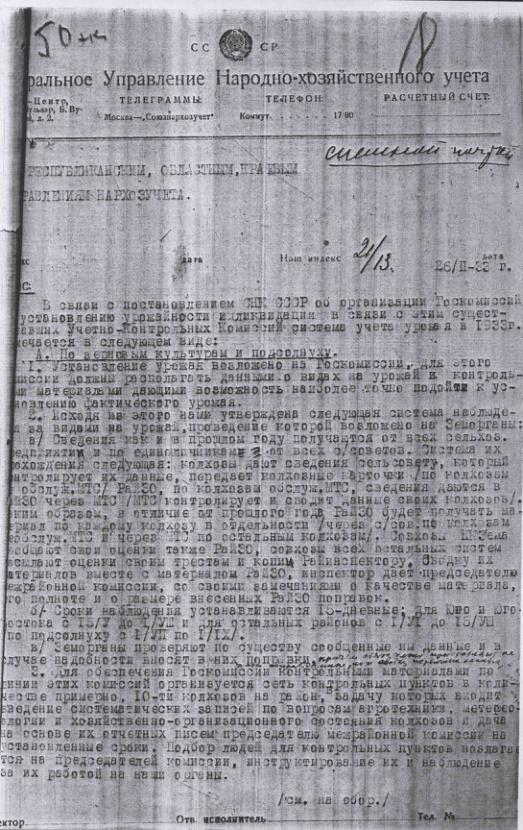 50 эк
18
СС СР
ральное Управление Народно-хозяйственного учета
-Центр, ТЕЛЕГРАММЫ: ТЕЛЕФОН: РАСЧЕТНЫЙ СЧЕТ:
д. 2. Москва—„Союзнархозучет" Коммут. 17-90
РЕСПУБЛИКАНСКИМ, ОБЛАСТНЫМ, КРАЕВЫМ
РАВЛЕНИЯМ НАРХОЗУЧЕТА.
дата Наш индекс 21/13. дата
26/II-33 г.
В связи с постановлением СНК СССР об организации Госкомиссий
установлению урожайности и ликвидации в связи с этим сущест-
вавших Учетно-Контрольных Комиссий система учета урожая в 1933г.
мечается в следующем виде:
А. По зерновым культурам и подсолнуху.
1. Установление урожая возложено на Госкомиссии, для этого
миссии должны располагать данными о видах на урожай и контроль-
ми материалами дающими возможность наиболее точно подойти к ус-
новлению фактического урожая.
2. Исходя из этого нами утверждена следующая система наблюде-
за видами на урожай, проведение которой возложено на Земорганы:
а/ Сведения как и в прошлом году получаются от всех сельхоз.
едприятий и по единоличникам от всех с/советов. Система их
хождения следующая: колхозы дают сведения сельсовету, который
нтролирует их данные, передает колхозные карточки /по колхозам
обслуж. МТС/ РайЗО, по колхозам обслуж. МТС, сведения даются в
йЗО через МТС /МТС контролирует и сводит данные своих колхозов/.
ким образом, в отличие от прошлого года РайЗО будет получать ма-
риал по каждому колхозу в отдельности /через с/сов. по колхозам
еобслуж. МТС и через МТС по остальным колхозам/. Совхозы НКЗема
общают свои оценки также РайЗО, совхозы всех остальных систем
сылают оценки своим трестам и копии Райинспектору. Сводку их
атериалов вместе с материалом РайЗО, инспектор дает председателю
межрайонной комиссии, со своими замечаниями о качестве материала,
его полноте и о размере внесенных РайЗО поправок.
б/ Сроки наблюдения устанавливаются 15-дневные; для Юго и Юго-
остока с 15/У до 1/УШ и для остальных районов с 1/УІ до 15/УШ
по подсолнуху с 1/УП по 1/IX/.
в/ Земорганы проверяют по существу сообщенные им данные и в
случае надобности вносят в них поправки
3. Для обеспечения Госкомиссии контрольными материалами по
линии этих комиссий организуется сеть контрольных пунктов в коли-
честве примерно, 10-ти колхозов на район, в задачу которых входит
введение систематических записей по вопросам агротехники, метерео-
логии и хозяйственно-организационного состояния колхозов и дача
на основе их отчетных писем председателю межрайонной комиссии на
установленные сроки. Подбор людей для контрольных пунктов возлага-
ется на председателей комиссии, инструктирование их и наблюдение
за их работой на наши органы.
/см. на обор./
ектор. Отв. исполнитель Тел. №